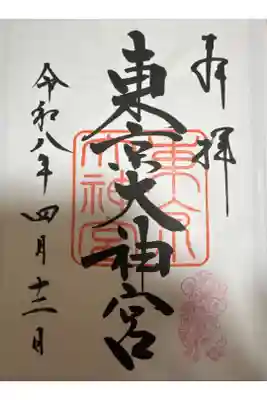 奉拝
東京大神宮
令和八年四月十二日
東京
大神宮